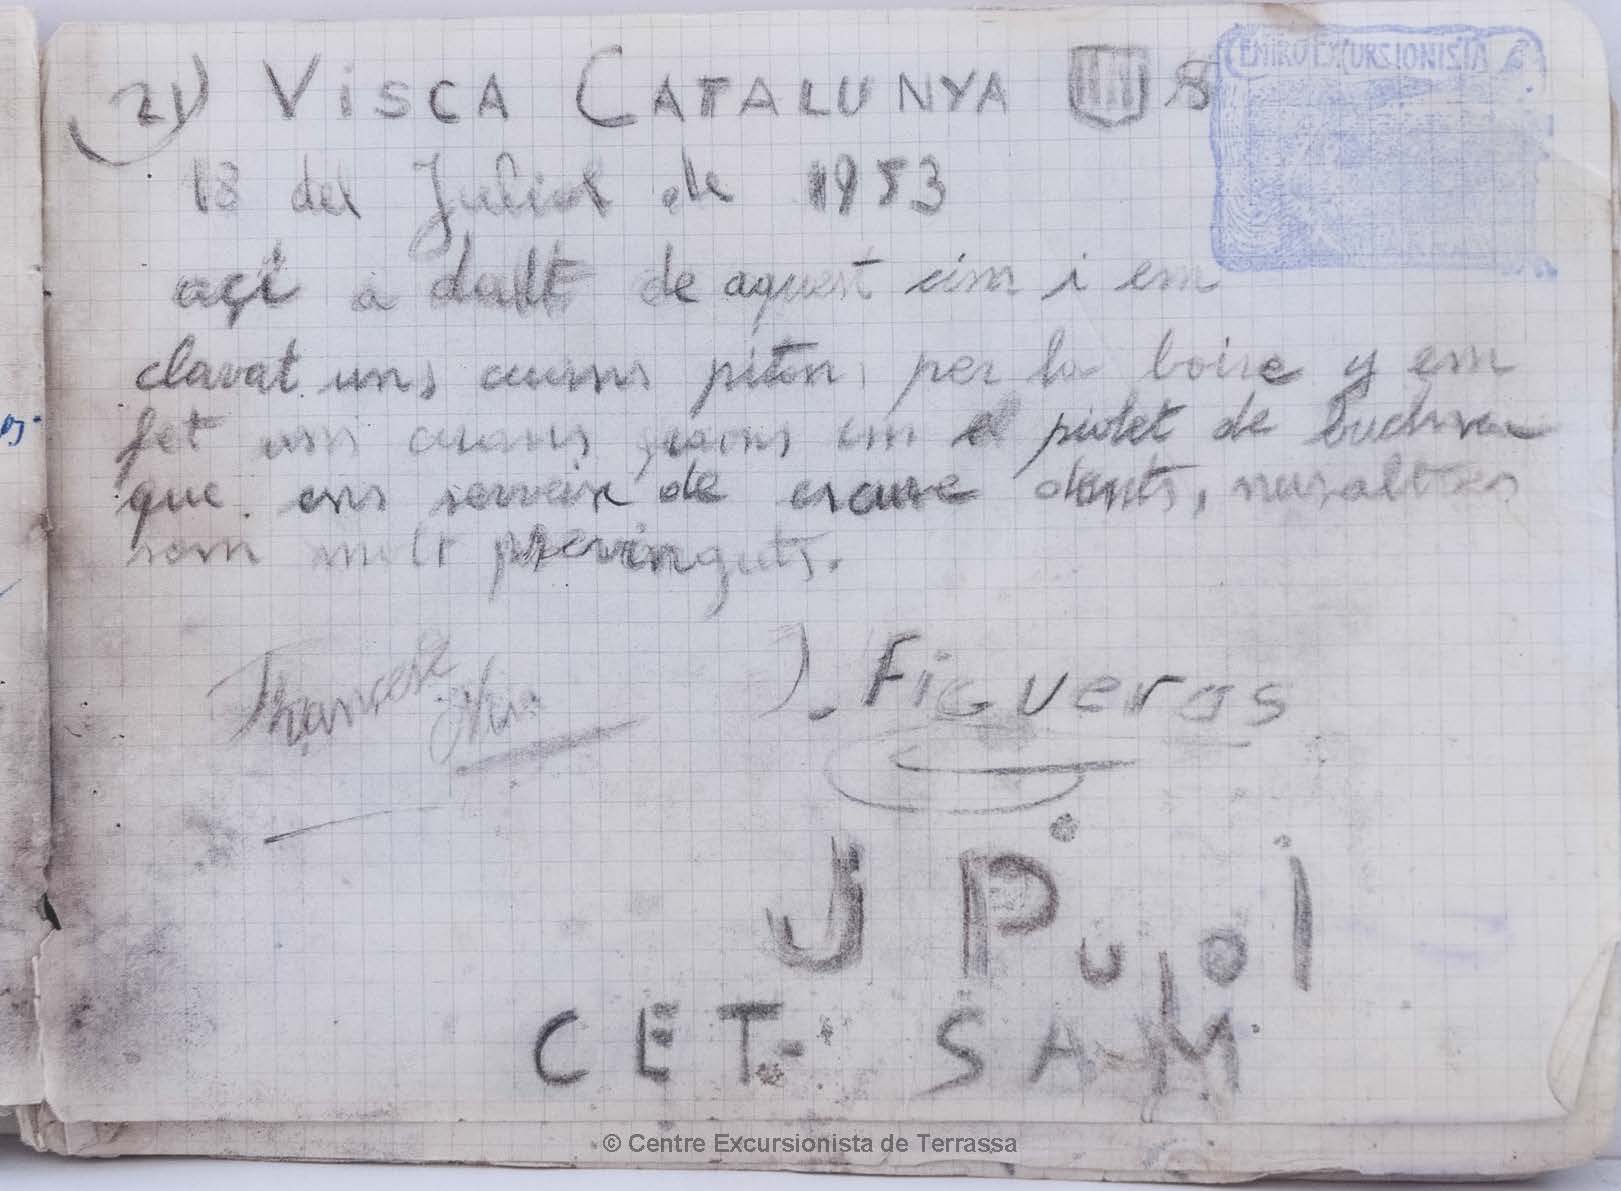 21) VISCA CATALUNYA
CENTRO EXCURSIONISTA
18 del Juliol de 1953
açi a dalt de aquest cim i em
clavat uns cuans piton per la boire y em
fet uns cuans graons em el piolet de butchaca
que ens serveix de escure dents, nusaltres
som molt previnguts.
J. Figueras
J Pujol
CET. SAM
© Centre Excursionista de Terrassa